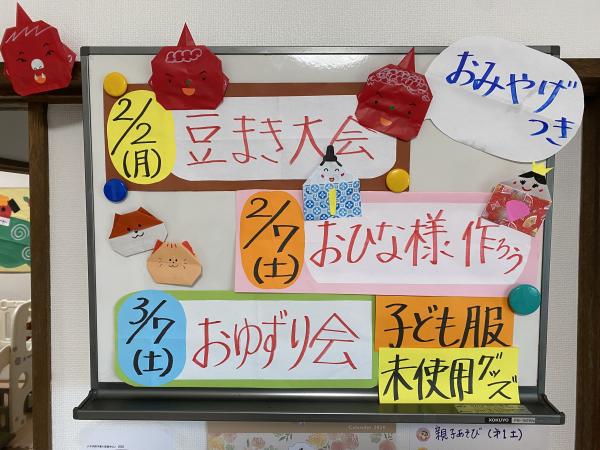 おみやげ
つき
2/2
(月)
豆まき大会
2/7
(土)
おひな様作ろう
3/7
(土)
おゆずり会
子ども服
未使用グッズ
KOKUYO
Calendar
親子あそび(第1土)